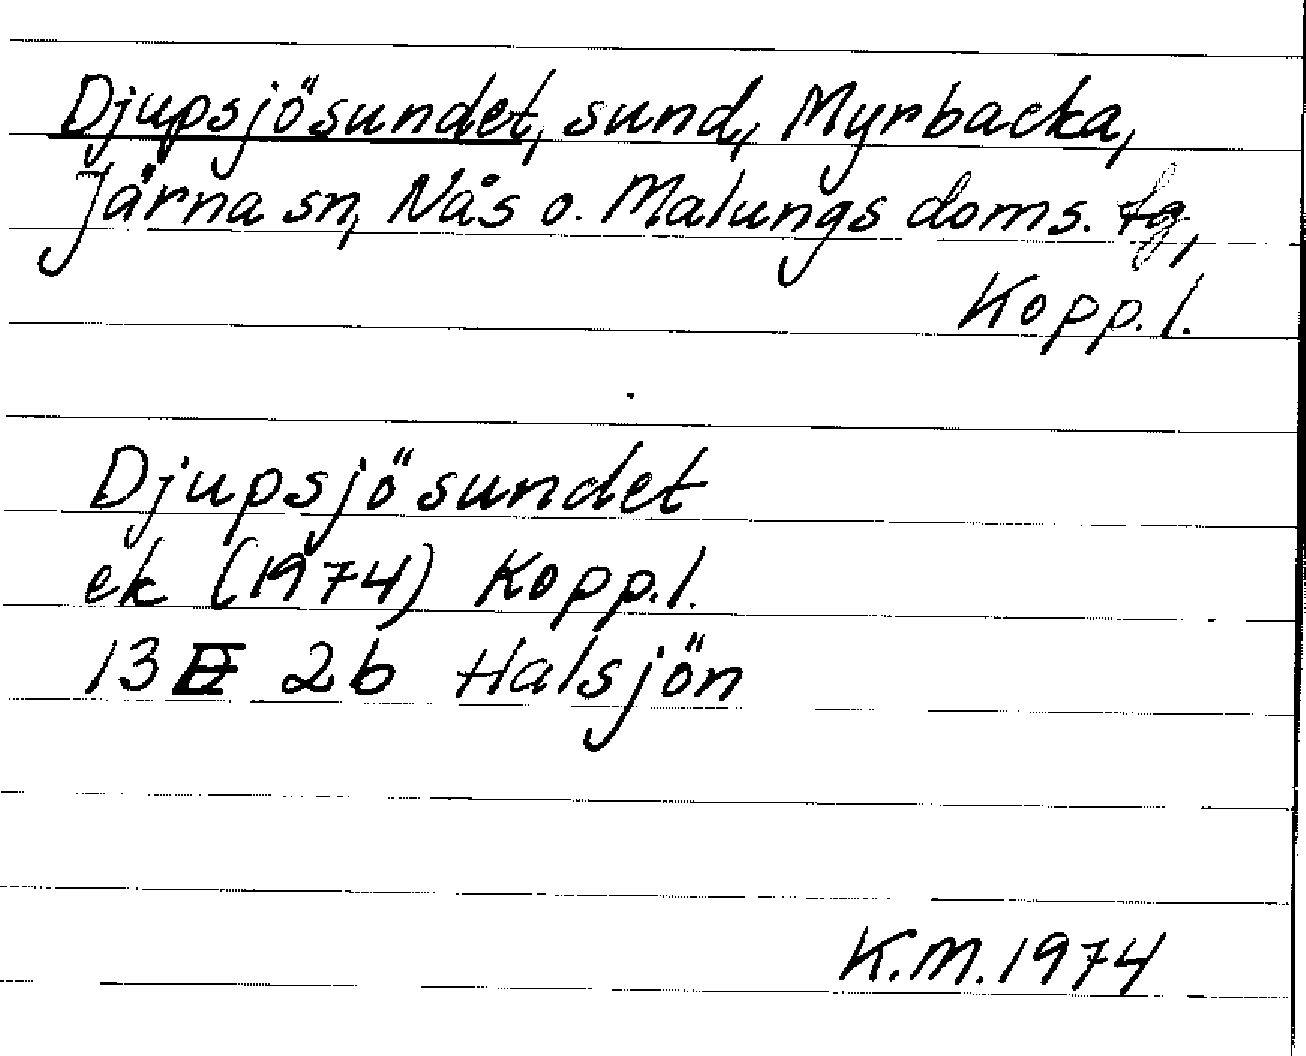 Djupsjösundet, sund, Myrbacka,
Järna sn, Nås o. Malungs doms. fg,
Kopp. l.
Djupsjösundet
ek (1974) Kopp. l.
13 E 2b Halsjön
K.M. 1974